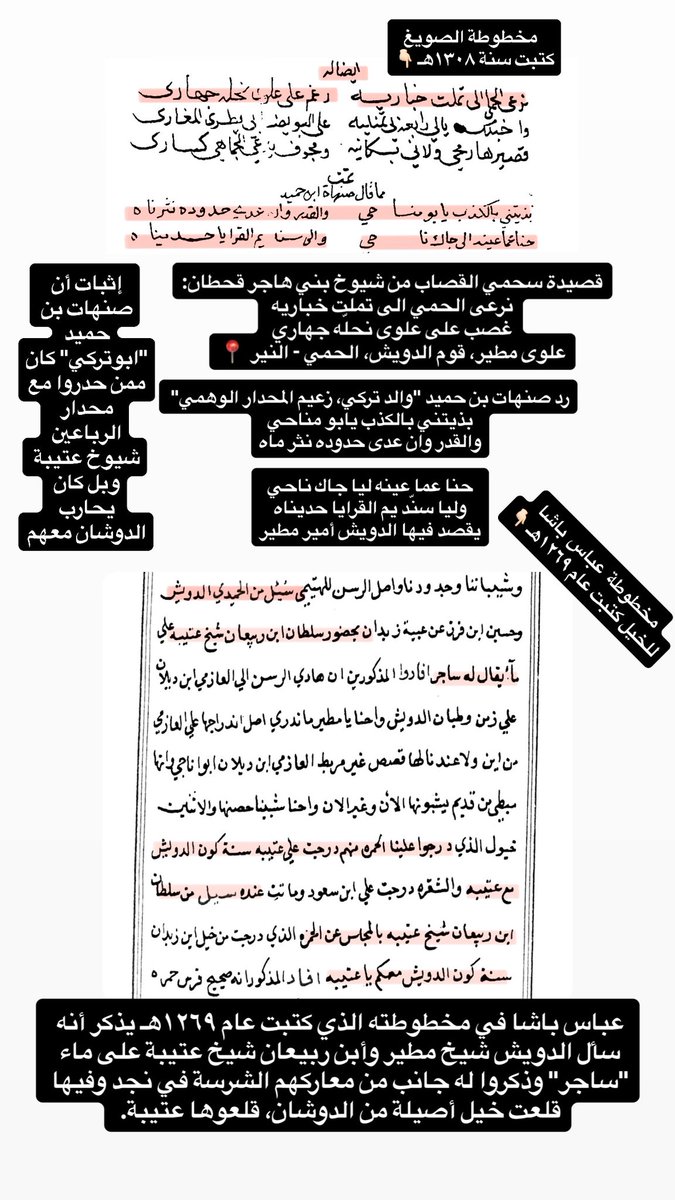 مخطوطة الصويغ
كتبت سنة ١٣٠٨هـ 👇🏻
ايضاله
نرعى الحمى الى تملت خباريه رغم على علوى نحله جهارى
قصير هارمحي ولاني بسكانيه
تمت
مما قال صنهاة ابن حميد
بذيتني بالكذب يا بو مناحي والقدر وان عدى حدوده نثرناه
حنا عما عينه الى جاك ناحي والى سند يم القرايا حديناه
إثبات أن
صنهات بن
حميد
"ابوتركي" كان
ممن حدروا مع
محدار
الرباعين
شيوخ عتيبة
وبل كان
يحارب
الدوشان معهم
قصيدة سحمي القصاب من شيوخ بني هاجر قحطان:
نرعى الحمي الى تملتِ خباريه
غصب على علوى نحله جهاري
علوى مطير، قوم الدويش، الحمي - النير 📍
رد صنهات بن حميد "والد تركي، زعيم المحدار الوهمي"
بذيتني بالكذب يابو مناحي
والقدر وان عدى حدوده نثر ماه
حنا عما عينه ليا جاك ناحي
وليا سنّد يم القرايا حديناه
يقصد فيها الدويش أمير مطير
مخطوطة عباس باشا
للخيل كتبت عام ١٢٦٩هـ 👇🏻
وشبيناتنا وحدودنا واصل الرسن للهتيمي سُئل من الحميدي الدويش
وحسين ابن فرز عن عبية زبدان بحضور سلطان ابن ربيعان شيخ عتيبه علي
مآء يقال له ساجر افادوا المذكورين ان هادي الرسن الي العازمي ابن دبلان
علي زمن وطبان الدويش واحنا يا مطير ماندري اصل اندراجها علي العازمي
من اين ولا عندنا لها قصص غير مربط العازمي ابن دبلان ابوا ناجي وانها
مبطي من قديم يشبونها الأن وغير الان واحنا شبينا حصنها والاثنين
خيول الذي درجوا علينا الحمره منهم درجت علي عتيبه سنة كون الدويش
مع عتيبه والشقره درجت علي ابن سعود وماتت عنده سيل من سلطان
ابن ربيعان شيخ عتيبه بالمجلس عن الحمره الذي درجت من خيل ابن زبدان
سنة كون الدويش معكم يا عتيبه افاد المذكور انه صحيح فرس حمره
عباس باشا في مخطوطته الذي كتبت عام ١٢٦٩هـ يذكر أنه
سأل الدويش شيخ مطير وأبن ربيعان شيخ عتيبة على ماء
"ساجر" وذكروا له جانب من معاركهم الشرسة في نجد وفيها
قلعت خيل أصيلة من الدوشان، قلعوها عتيبة.